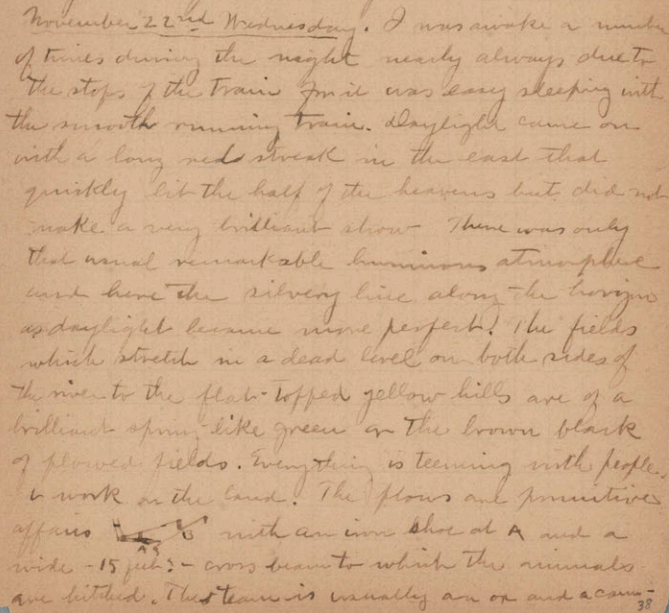 November 22nd Wednesday. I was awake a number
of times during the night nearly always due to
the stops of the train for it was easy sleeping with
the smooth running train. Daylight came on
with a long red streak in the east that
quickly lit the half of the heavens but did not
make a very brilliant show. There was only
that usual remarkable luminous atmosphere
and here the silvery line along the horizon
as daylight became more perfect. The fields
which stretch in a dead level on both sides of
the river to the flat-topped yellow hills are of a
brilliant spring-like green or the brown black
of plowed fields. Everything is teeming with people
at work on the land. The plows are primitive
affairs with an iron shoe at A and a
wide - 15 feet? - cross beam to which the animals
are hitched. The team is usually an ox and a cam-
38